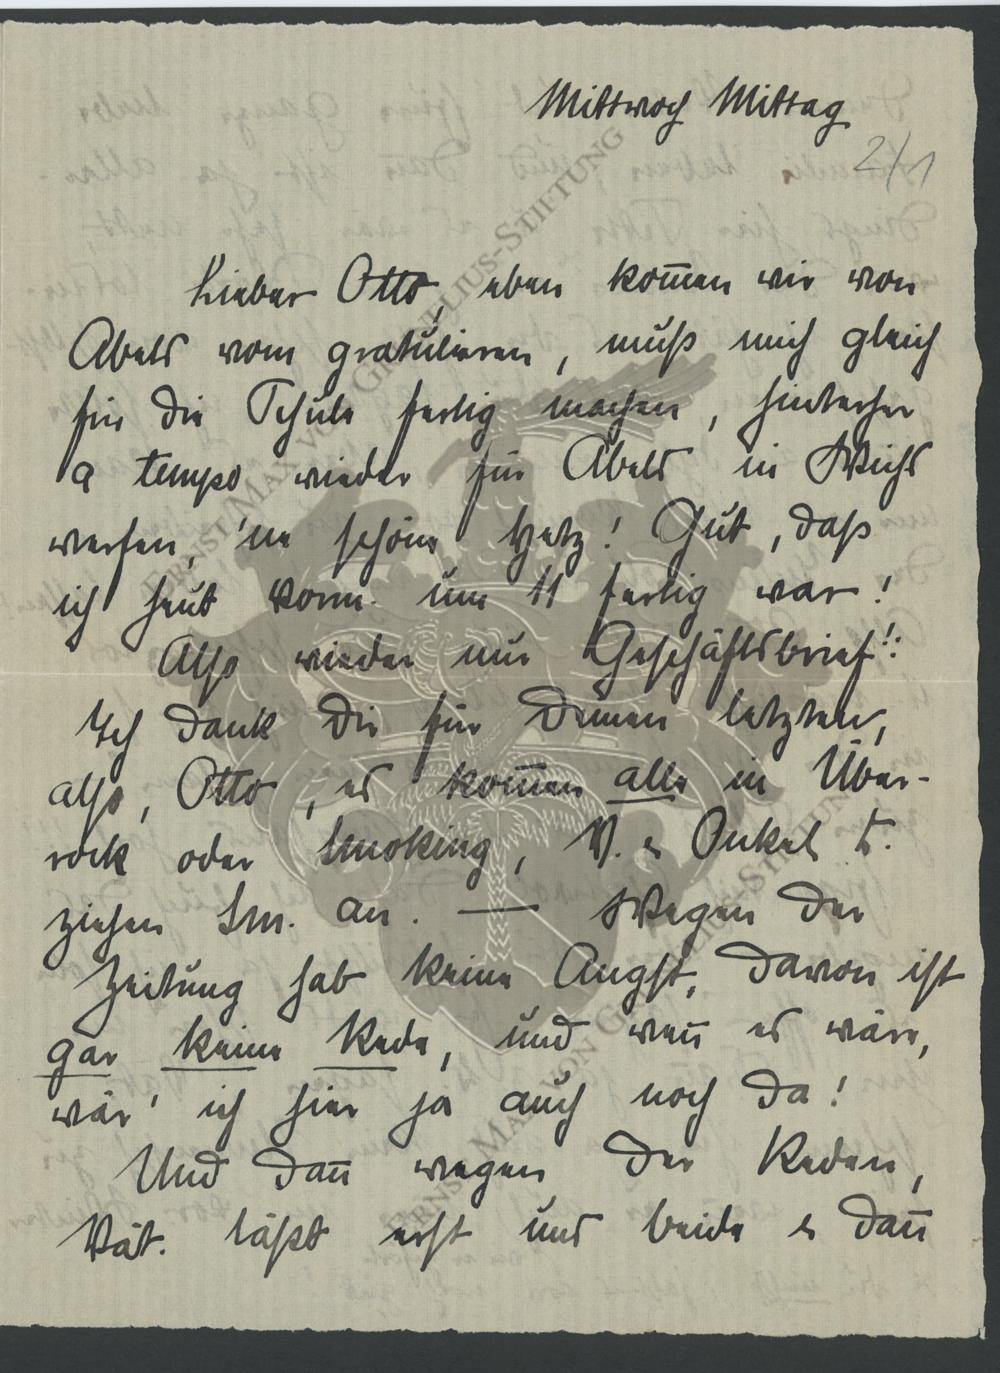 Mittwoch Mittag
2/1
Lieber Otto, eben kom̄en wir von
Abels vom gratulieren, muß mich gleich
für die Schule fertig machen, hinterher
a tempo wieder für Abels in Wichs
werfen, 'ne schöne Hetz! Gut, daß
ich heut vorm. um 11 fertig war!
Also wieder nur Geschäftsbrief!!
Ich dank Dir für Deinen letzten,
also, Otto, es kom̄en alle in Über-
rock oder Smoking, V. u Onkel S.
ziehen Sm. an. — Wegen der
Zeitung hab keine Angst, davon ist
gar keine Rede, und wen̄ es wäre,
wär' ich hier ja auch noch da!
Und dan̄ wegen der Reden,
Vät. läßt erst uns beide u dan̄
ERNST MAX VON GRUNELIUS-STIFTUNG
ERNST MAX VON GRUNELIUS-STIFTUNG